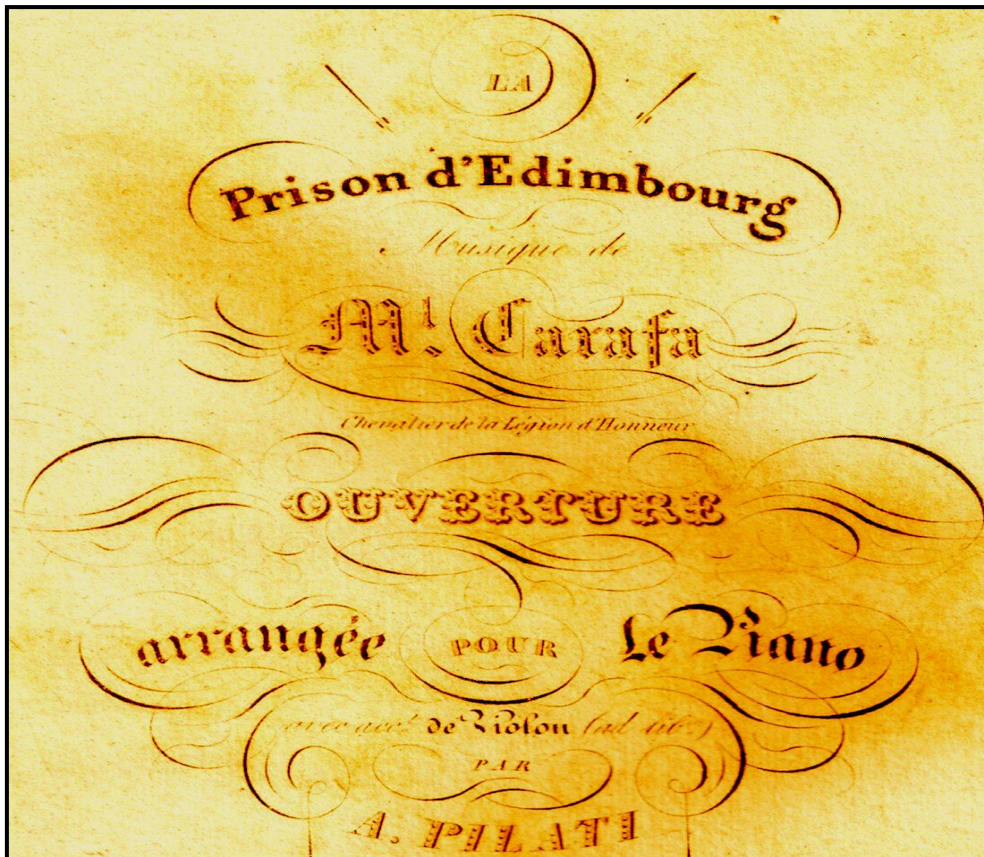 LA
Prison d'Edimbourg
Musique de
M!. Carafa
Chevalier de la Légion d'Honneur
OUVERTURE
arrangée POUR Le Piano
avec acct. de Violon (ad lib:)
PAR
A. PILATI